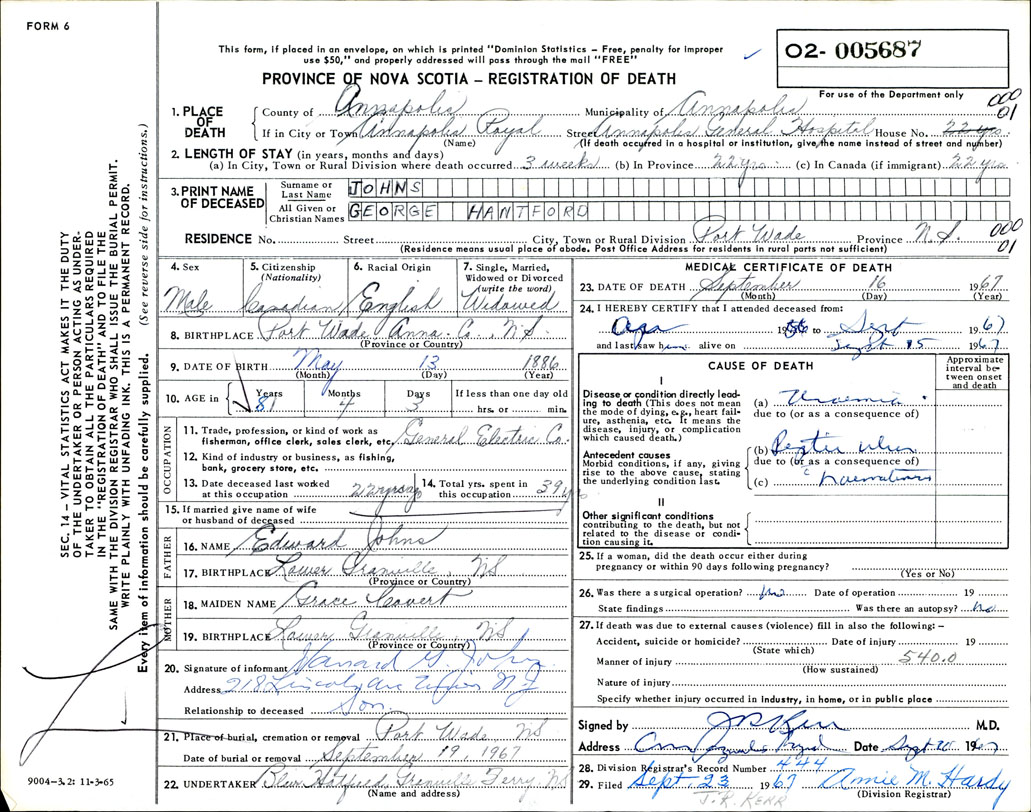 FORM 6
This form, if placed in an envelope, on which is printed "Dominion Statistics – Free, penalty for improper
use $50," and properly addressed will pass through the mail "FREE"
O2- 005687
PROVINCE OF NOVA SCOTIA – REGISTRATION OF DEATH
For use of the Department only
000
01
1. PLACE OF DEATH
County of Annapolis Municipality of Annapolis
If in City or Town Annapolis Royal Street Annapolis General Hospital House No. 22 yrs
(Name) (If death occurred in a hospital or institution, give the name instead of street and number)
2. LENGTH OF STAY (in years, months and days)
(a) In City, Town or Rural Division where death occurred 3 weeks (b) In Province 22 yrs (c) In Canada (if immigrant) 22 yrs
3. PRINT NAME OF DECEASED
Surname or Last Name JOHNS
All Given or Christian Names GEORGE HANTFORD
RESIDENCE No. Street City, Town or Rural Division Port Wade Province N.S.
000
01
(Residence means usual place of abode. Post Office Address for residents in rural parts not sufficient)
4. Sex Male
5. Citizenship (Nationality) Canadian
6. Racial Origin English
7. Single, Married, Widowed or Divorced (write the word) Widowed
8. BIRTHPLACE Port Wade Anna. Co., N.S.
(Province or Country)
9. DATE OF BIRTH May 13 1886
(Month) (Day) (Year)
10. AGE in Years 81 Months 4 Days 3 If less than one day old hrs. or min.
OCCUPATION
11. Trade, profession, or kind of work as
fisherman, office clerk, sales clerk, etc. General Electric Co.
12. Kind of industry or business, as fishing,
bank, grocery store, etc.
13. Date deceased last worked at this occupation 22 yrs ago
14. Total yrs. spent in this occupation 39 yrs
15. If married give name of wife
or husband of deceased
FATHER
16. NAME Edward Johns
17. BIRTHPLACE Lower Granville, NS
(Province or Country)
MOTHER
18. MAIDEN NAME Grace Covert
19. BIRTHPLACE Lower Granville, NS
(Province or Country)
20. Signature of informant G. Johns
Address 218 Lincoln Ave N.J.
Relationship to deceased Son
21. Place of burial, cremation or removal Port Wade NS
Date of burial or removal September 19, 1967
22. UNDERTAKER Hatfield, Granville Ferry, NS
(Name and address)
MEDICAL CERTIFICATE OF DEATH
23. DATE OF DEATH September 16 1967
(Month) (Day) (Year)
24. I HEREBY CERTIFY that I attended deceased from:
1956 to Sept 1967
and last saw him alive on Sept 15 1967
CAUSE OF DEATH
Approximate interval between onset and death
I
Disease or condition directly leading to death (This does not mean the mode of dying, e.g., heart failure, asthenia, etc. It means the disease, injury, or complication which caused death.)
(a) Uraemia
due to (or as a consequence of)
Antecedent causes
Morbid conditions, if any, giving rise to the above cause, stating the underlying condition last.
(b) Peptic ulcer
due to (or as a consequence of)
(c)
II
Other significant conditions
contributing to the death, but not related to the disease or condition causing it.
25. If a woman, did the death occur either during
pregnancy or within 90 days following pregnancy?
(Yes or No)
26. Was there a surgical operation? no Date of operation 19
State findings Was there an autopsy? no
27. If death was due to external causes (violence) fill in also the following: –
Accident, suicide or homicide? Date of injury 19
(State which)
Manner of injury 540.0
(How sustained)
Nature of injury
Specify whether injury occurred in industry, in home, or in public place
Signed by J R Kerr M.D.
Address Annapolis Royal Date Sept 20 1967
28. Division Registrar's Record Number 444
29. Filed Sept. 23 1967 Annie M. Hardy
J. R. KERR (Division Registrar)
SEC. 14 – VITAL STATISTICS ACT MAKES IT THE DUTY
OF THE UNDERTAKER OR PERSON ACTING AS UNDER-
TAKER TO OBTAIN ALL THE PARTICULARS REQUIRED
IN THE "REGISTRATION OF DEATH" AND TO FILE THE
SAME WITH THE DIVISION REGISTRAR WHO SHALL ISSUE THE BURIAL PERMIT.
WRITE PLAINLY WITH UNFADING INK. THIS IS A PERMANENT RECORD.
Every item of information should be carefully supplied. (See reverse side for instructions.)
9004-3.2: 11-3-65